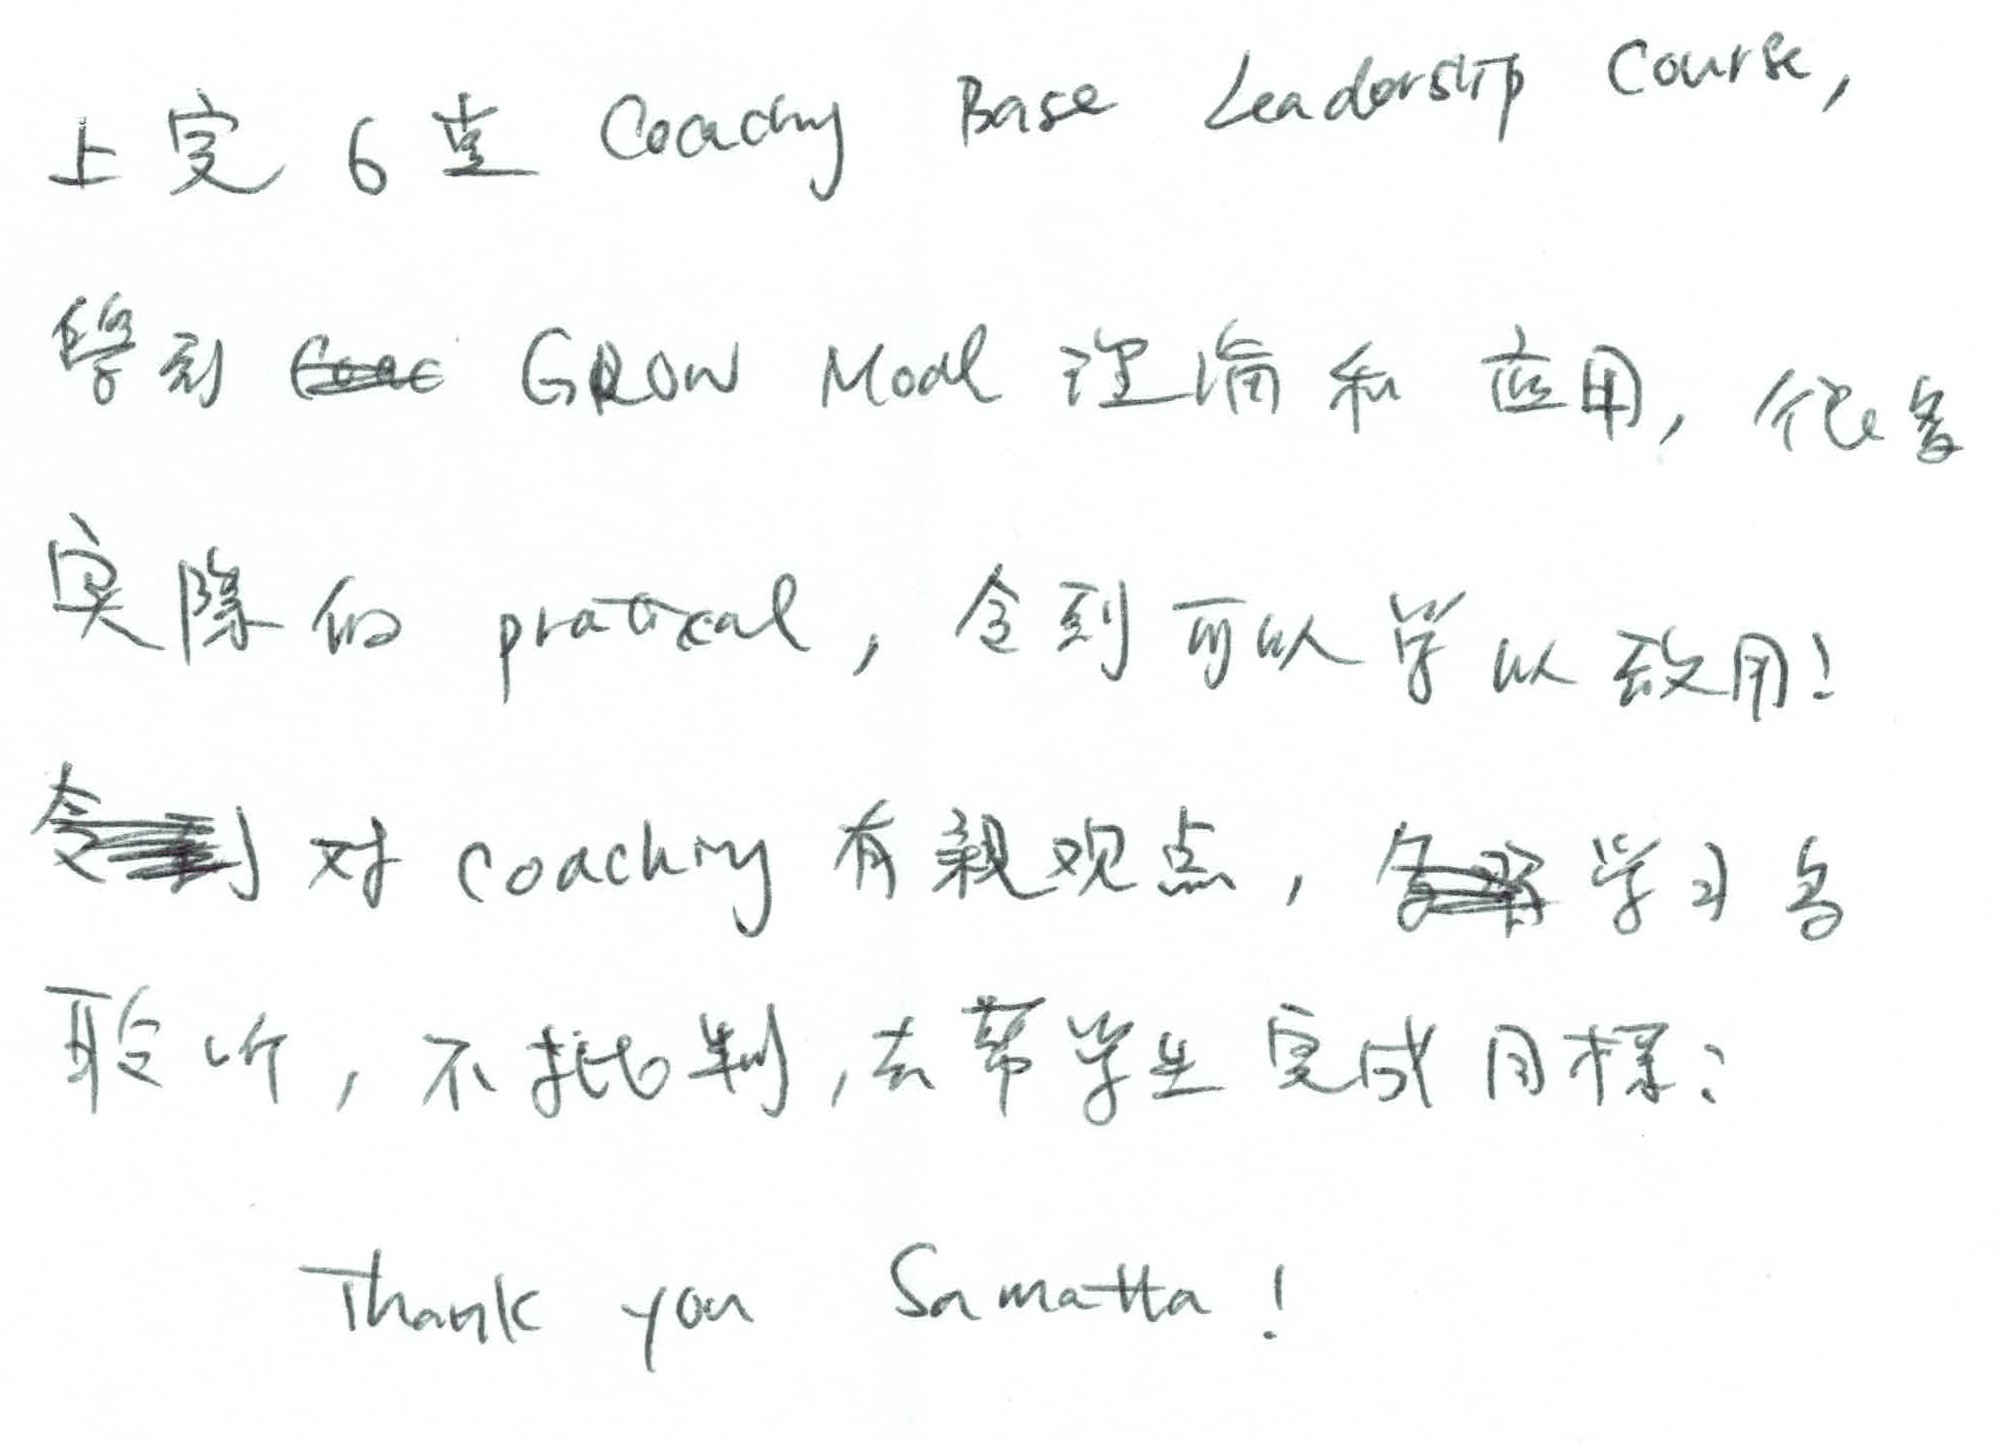 上完 6 堂 Coaching Base Leadership Course,
學到 GROW Model 理論和应用, 很多
実際的 pratical, 令到可以学以致用!
对 coaching 有親观点, 学习多
聆听, 不批判, 去帮学生完成目標:
Thank you Samatta!